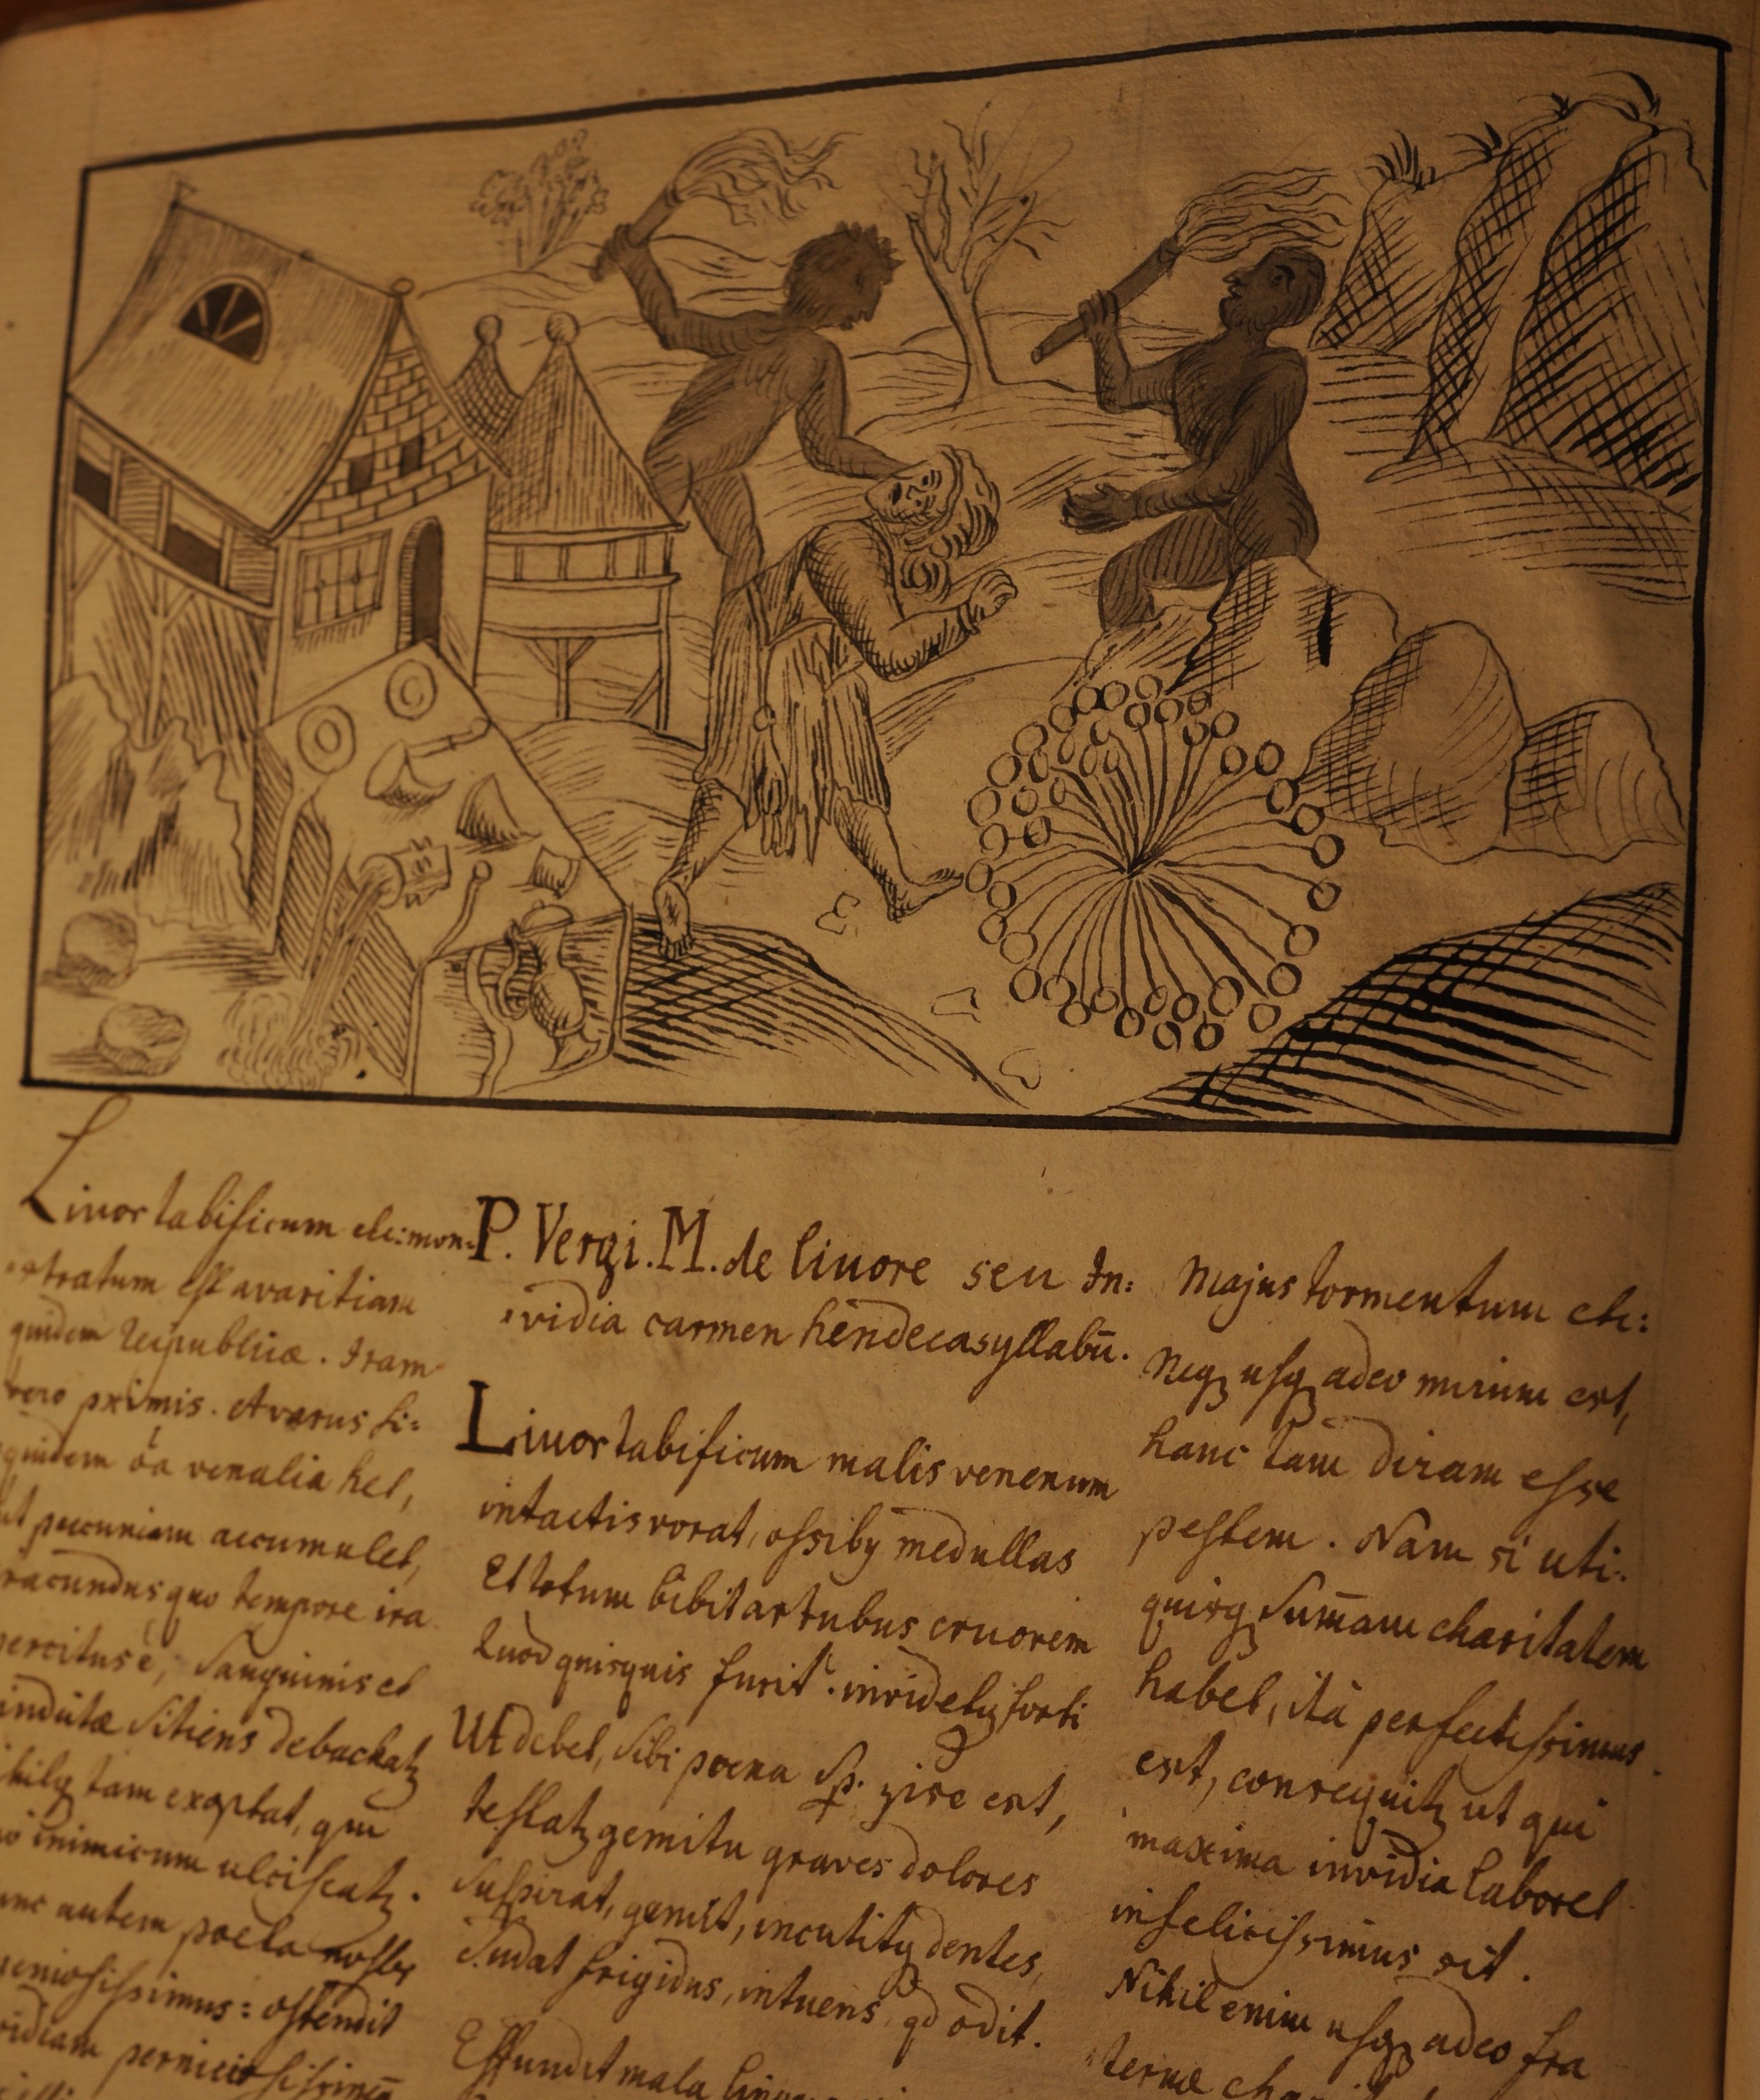 Livor tabificum etc: mon-
stratum est avaritiam
quidem Reipublicæ. Iram
vero pximis. Avarus si=
quidem oīa venalia het,
ut pecuniam accumulet,
racundus quo tempore ira
percitus ē, sanguinis et
vindictæ sitiens debachatꝛ
nihilꝙ tam exoptat, quā
inimicum ulciscatꝛ.
nunc autem poeta nosteꝛ
ingeniosissimus: ostendit
invidiam perniciosissimā
P. Vergi. M. de livore seu In:
vidia carmen hendecasyllabū.
Livor tabificum malis venenum
intactis vorat, ossibꝫ medullas
Et totum bibit artubus cruorem
Quod quisquis furit. invidetqꝫ sorti
Ut debet, sibi poena sp. ipse est,
testatꝛ gemitu graves dolores
Suspirat, gemit, incutitqꝫ dentes,
Sudat frigidus, intuens qd odit.
Effundit mala lingua
Majus tormentum etc:
Neqꝫ usqꝫ adeo mirum est,
hanc tam diram esse
pestem. Nam si uti
quisqꝫ summam charitatem
habet, ità perfectissimus
est, consequitꝛ ut qui
maxima invidia laboret
infelicissimus sit.
Nihil enim usqꝫ adeo fra
ternæ